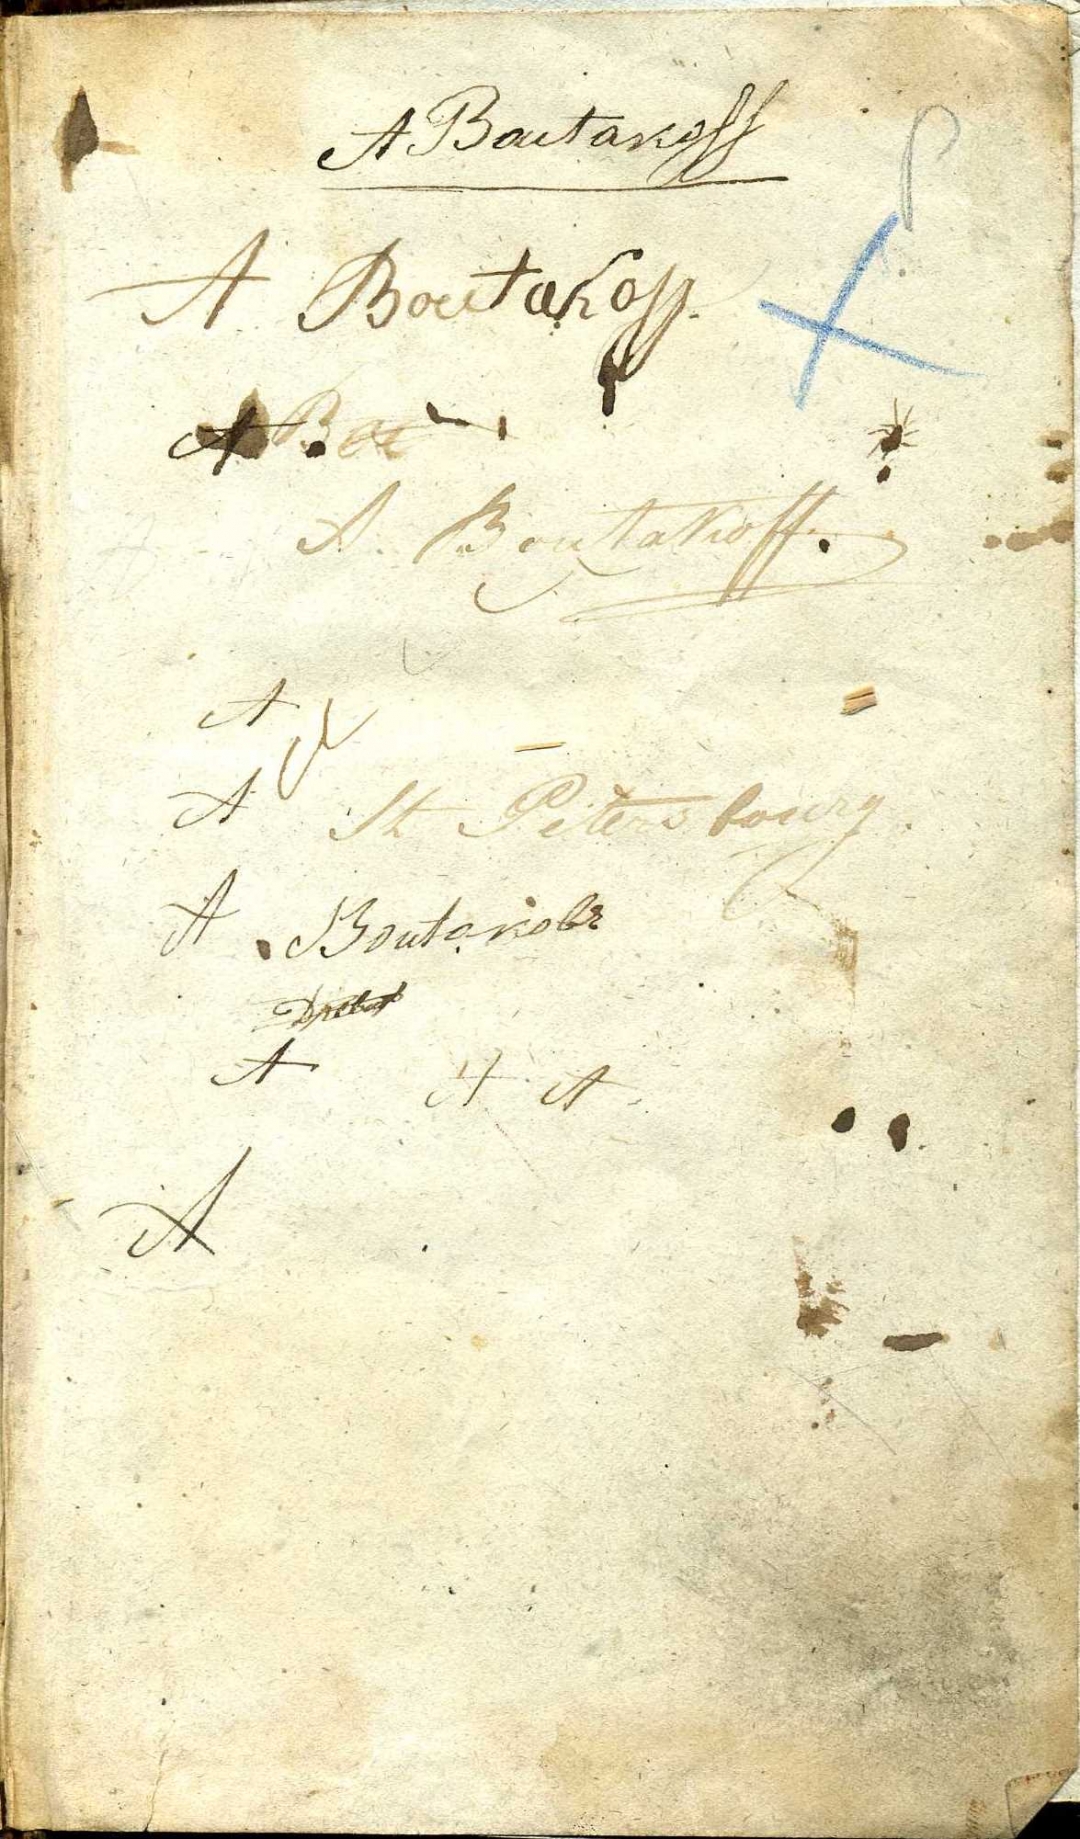 A Boutakoff
A Boutakoff.
A Bou
A. Boutakoff.
A
A St Petersbourg.
A Boutakovъ
A A A
A